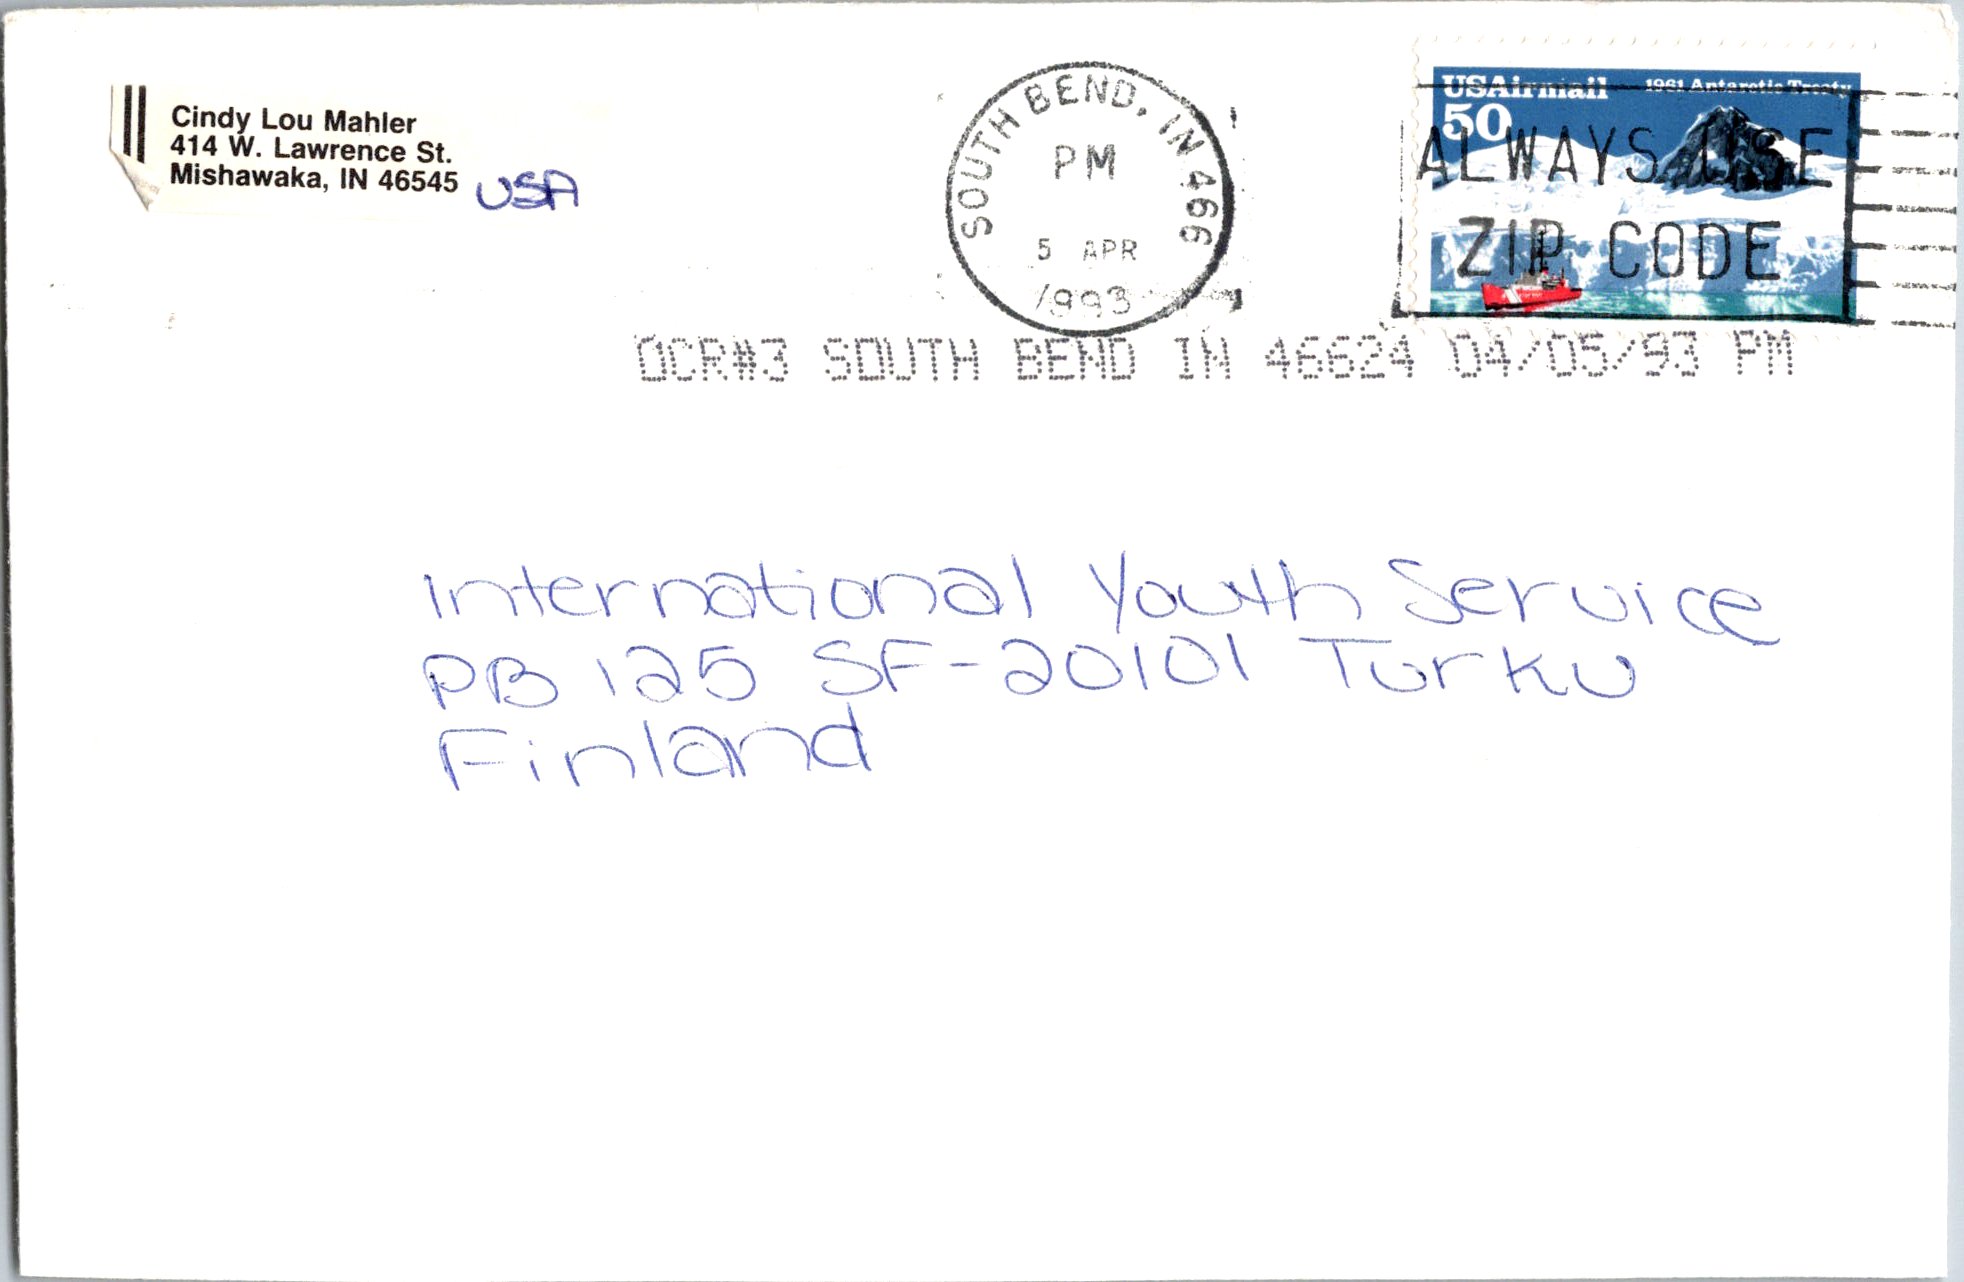 Cindy Lou Mahler
414 W. Lawrence St.
Mishawaka, IN 46545 USA
SOUTH BEND, IN 466
PM
5 APR
1993
USAirmail 1961 Antarctic Treaty
50
ALWAYS USE
ZIP CODE
OCR#3 SOUTH BEND IN 46624 04/05/93 PM
International Youth Service
PB 125 SF-20101 Turku
Finland